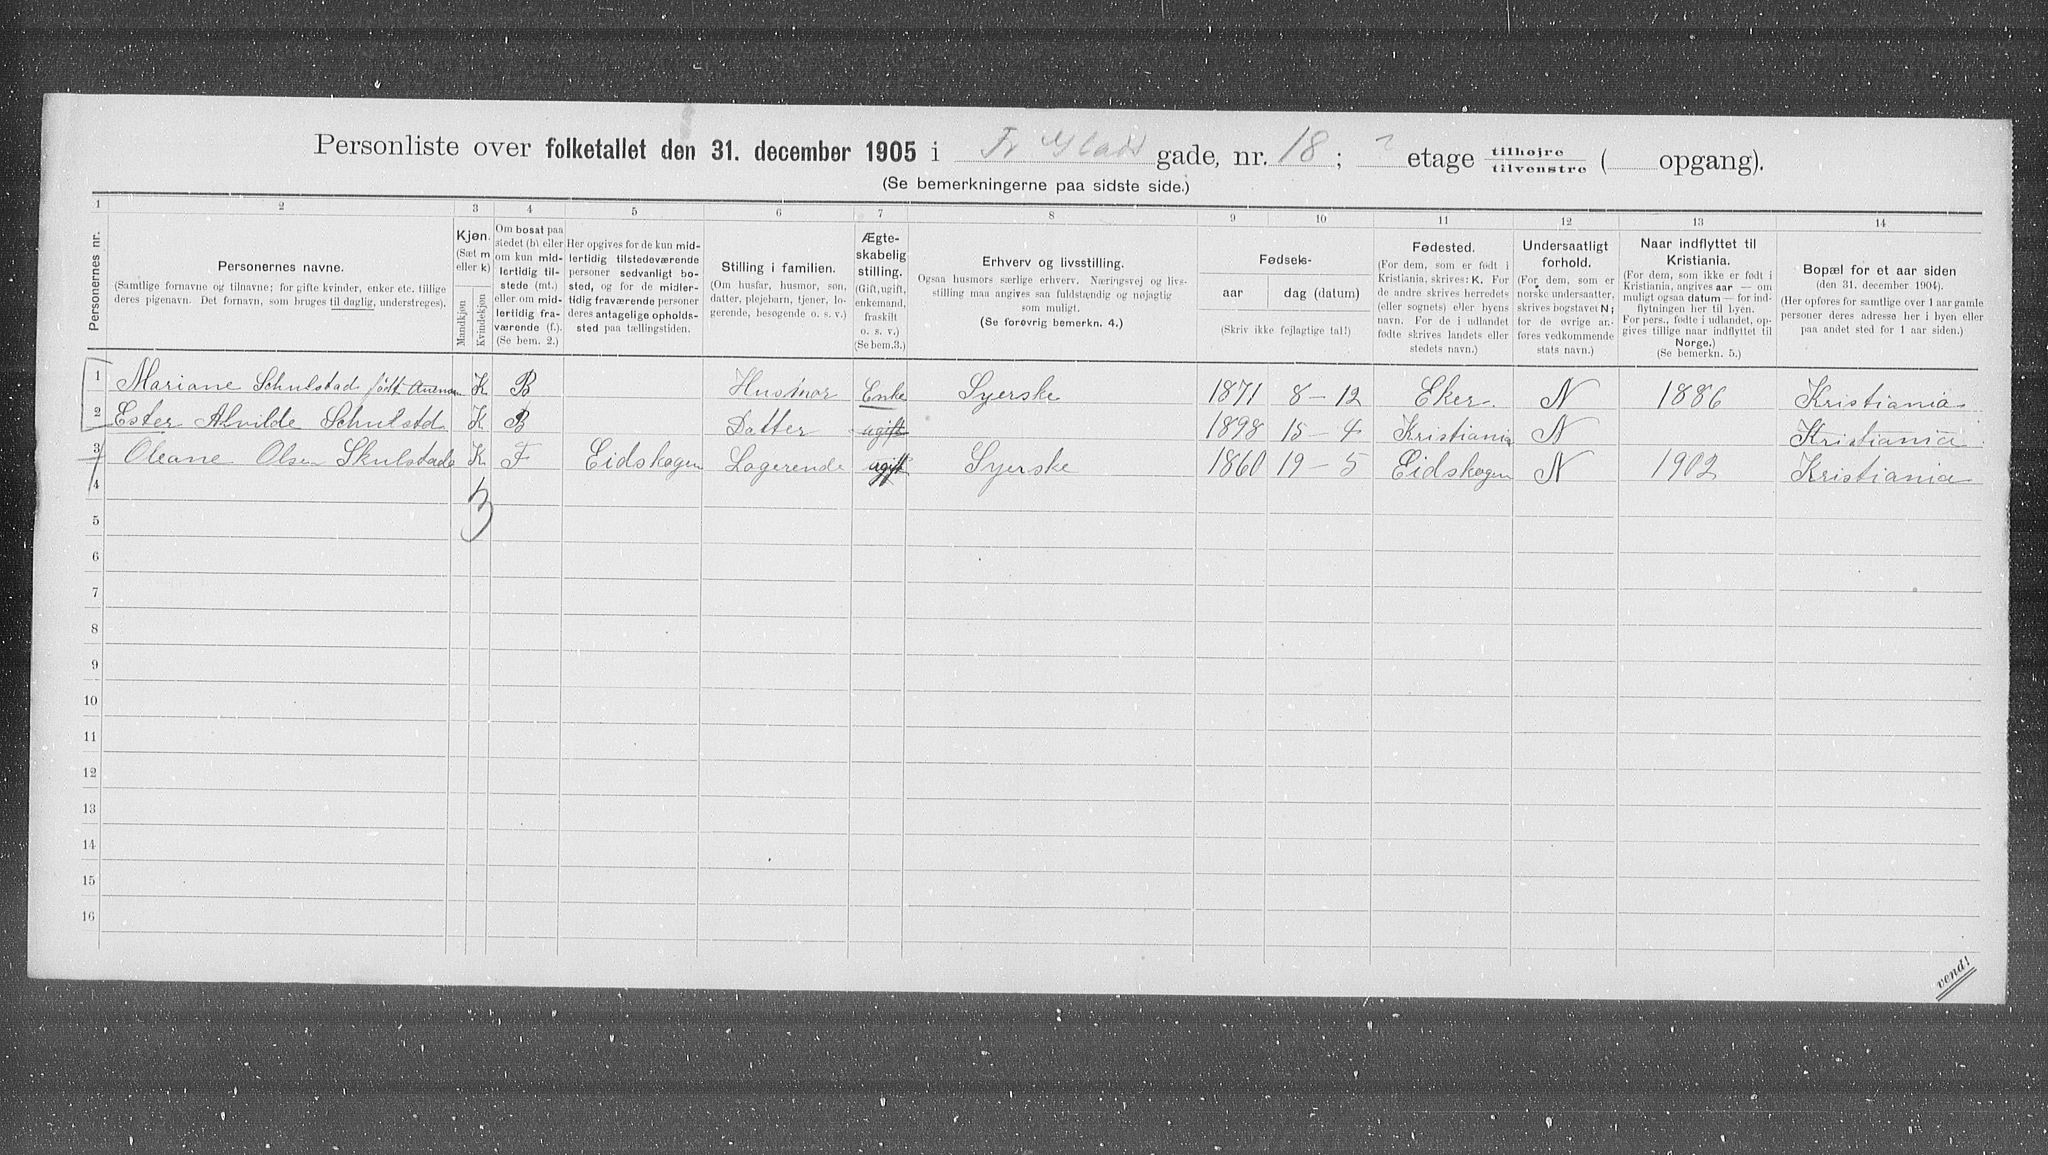 Personliste over folketallet den 31. december 1905 i Fr Glads gade, nr. 18; etage tilhøjre tilvenstre ( opgang).
(Se bemerkningerne paa sidste side.)
1 2 3 4 5 6 7 8 9 10 11 12 13 14
Personernes nr.
Personernes navne.
(Samtlige fornavne og tilnavne; for gifte kvinder, enker etc. tillige
deres pigenavn. Det fornavn, som bruges til daglig, understreges).
Kjøn.
(Sæt m
eller k)
Mandkjøn
Kvindekjøn
Om bosat paa
stedet (b) eller
om kun mid-
lertidig til-
stede (mt.)
eller om mid-
lertidig fra-
værende (f.).
(Se bem. 2.)
Her opgives for de kun mid-
lertidig tilstedeværende
personer sedvanligt bo-
sted, og for de midler-
tidig fraværende personer
deres antagelige opholds-
sted paa tællingstiden.
Stilling i familien.
(Om husfar, husmor, søn,
datter, plejebarn, tjener, lo-
gerende, besøgende o. s. v.)
Ægte-
skabelig
stilling.
(Gift, ugift,
enkemand,
fraskilt
o. s. v.)
(Se bem. 3.)
Erhverv og livsstilling.
Ogsaa husmors særlige erhverv. Næringsvej og livs-
stilling maa angives saa fuldstændig og nøjagtig
som muligt.
(Se forøvrig bemerkn. 4.)
Fødsels-
aar
dag (datum)
(Skriv ikke fejlagtige tal!)
Fødested.
(For dem, som er født i
Kristiania, skrives: K. For
de andre skrives herredets
(eller sognets) eller byens
navn. For de i udlandet
fødte skrives landets eller
stedets navn.)
Undersaatligt
forhold.
(For dem, som er
norske undersaatter,
skrives bogstavet N;
for de øvrige an-
føres vedkommende
stats navn.)
Naar indflyttet til
Kristiania.
(For dem, som ikke er født i
Kristiania, angives aar — om
muligt ogsaa datum — for ind-
flytningen her til byen.
For pers., fødte i udlandet, op-
gives tillige naar indflyttet til
Norge.)
(Se bemerkn. 5.)
Bopæl for et aar siden
(den 31. december 1904).
(Her opføres for samtlige over 1 aar gamle
personer deres adresse her i byen eller
paa andet sted for 1 aar siden.)
1 Mariane Schulstad født K B Husmor Enke Syerske 1871 8 – 12 Eker. N 1886 Kristiania
2 Ester Alvilde Schulstd K B Datter ugift 1898 15 – 4 Kristiania N Kristiania
3 Oleane Olsen Skulstade K F Eidskogen Logerende ugift Syerske 1860 19 – 5 Eidskogen N 1902 Kristiania
4
3
5
6
7
8
9
10
11
12
13
14
15
16
vend!